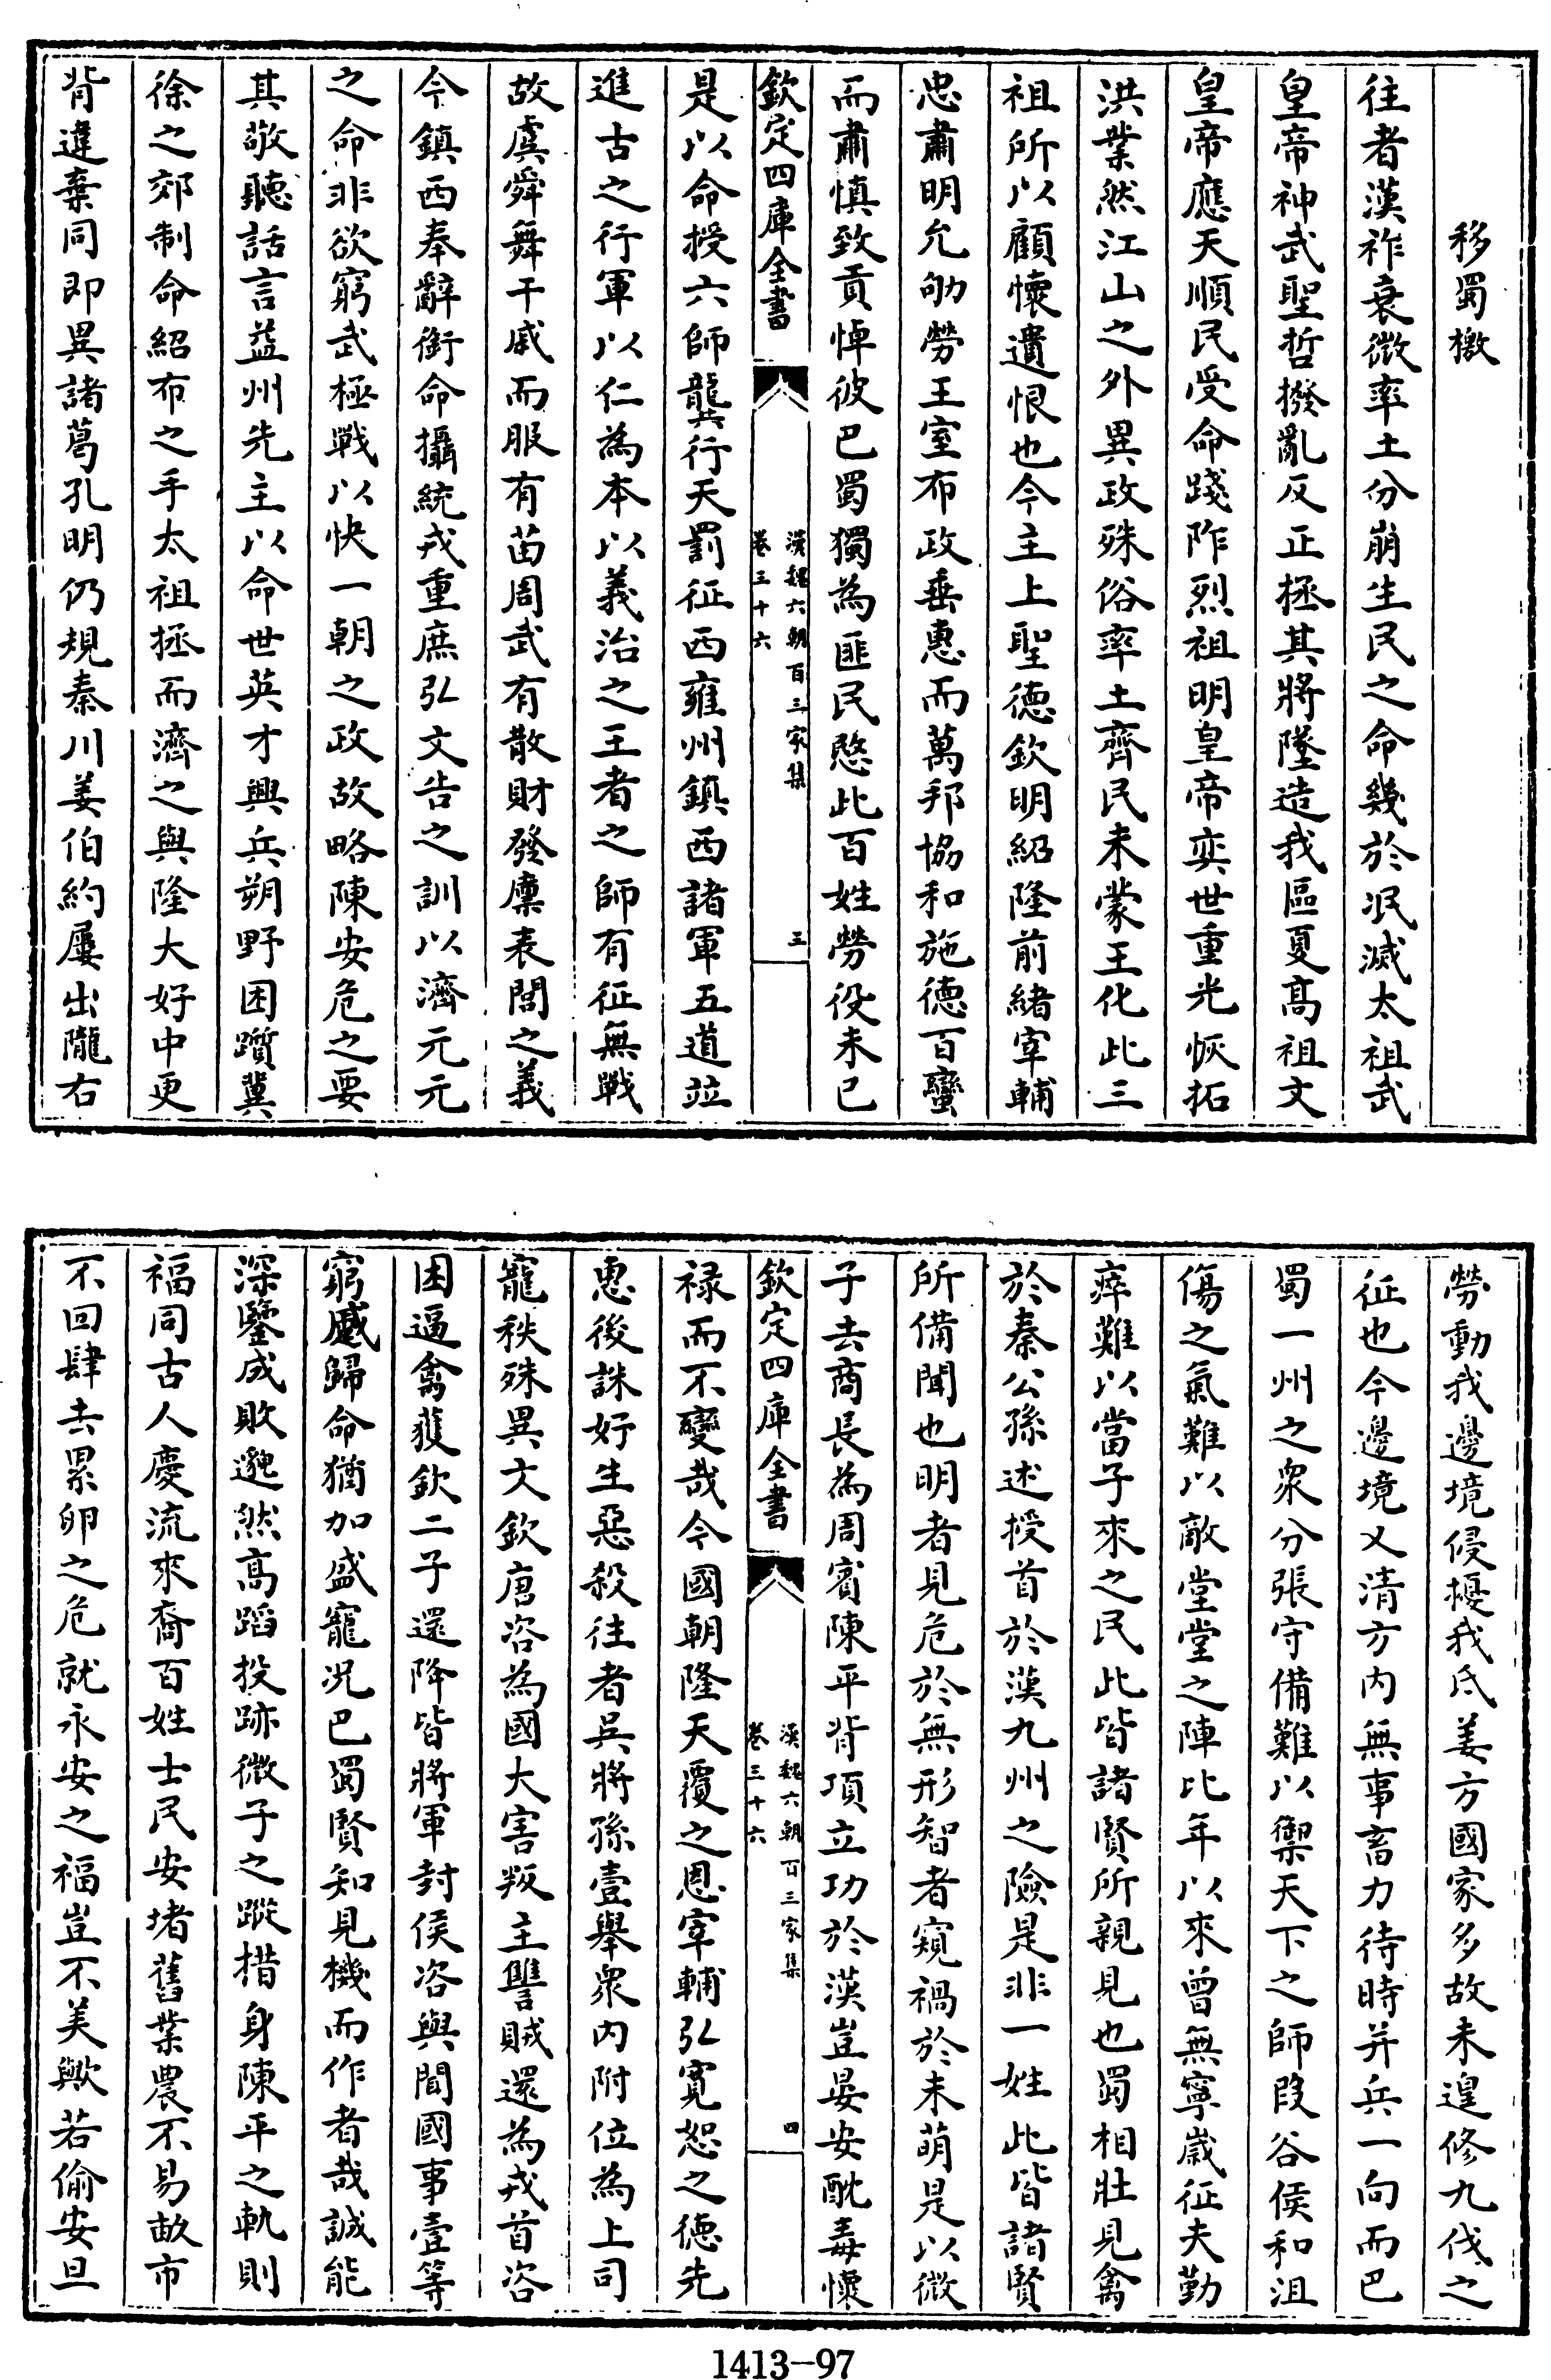 移蜀檄
往者漢祚衰微率土分崩生民之命幾於泯滅太祖武
皇帝神武聖哲撥亂反正拯其將墜造我區夏高祖文
皇帝應天順民受命踐阼烈祖明皇帝奕世重光恢拓
洪業然江山之外異政殊俗率土齊民未蒙王化此三
祖所以顧懷遺恨也今主上聖德欽明紹隆前緒宰輔
忠肅明允劬勞王室布政垂惠而萬邦協和施德百蠻
而肅慎致貢悼彼巴蜀獨為匪民愍此百姓勞役未已
欽定四庫全書
漢魏六朝百三家集
卷三十六
三
是以命授六師龔行天罰征西雍州鎮西諸軍五道並
進古之行軍以仁為本以義治之王者之師有征無戰
故虞舜舞干戚而服有苗周武有散財發廩表閭之義
今鎮西奉辭銜命攝統戎重庶弘文告之訓以濟元元
之命非欲窮武極戰以快一朝之政故略陳安危之要
其敬聽話言益州先主以命世英才興兵朔野困躓冀
徐之郊制命紹布之手太祖拯而濟之與隆大好中更
背違棄同即異諸葛孔明仍規秦川姜伯約屢出隴右
勞動我邊境侵擾我氐姜方國家多故未遑修九伐之
征也今邊境乂清方內無事畜力待時并兵一向而巴
蜀一州之衆分張守備難以禦天下之師段谷侯和沮
傷之氣難以敵堂堂之陣比年以來曾無寧歲征夫勤
瘁難以當子來之民此皆諸賢所親見也蜀相壯見禽
於秦公孫述授首於漢九州之險是非一姓此皆諸賢
所備聞也明者見危於無形智者窺禍於未萌是以微
子去商長為周賓陳平背項立功於漢豈晏安酖毒懷
欽定四庫全書
漢魏六朝百三家集
卷三十六
四
祿而不變哉今國朝隆天覆之恩宰輔弘寬恕之德先
惠後誅好生惡殺往者吳將孫壹舉衆內附位為上司
寵秩殊異文欽唐咨為國大害叛主讐賊還為戎首咨
困逼禽獲欽二子還降皆將軍封侯咨與聞國事壹等
窮蹙歸命猶加盛寵況巴蜀賢知見機而作者哉誠能
深鑒成敗邈然高蹈投跡微子之蹤措身陳平之軌則
福同古人慶流來裔百姓士民安堵舊業農不易畝市
不回肆去累卵之危就永安之福豈不美歟若偷安旦
1413-97